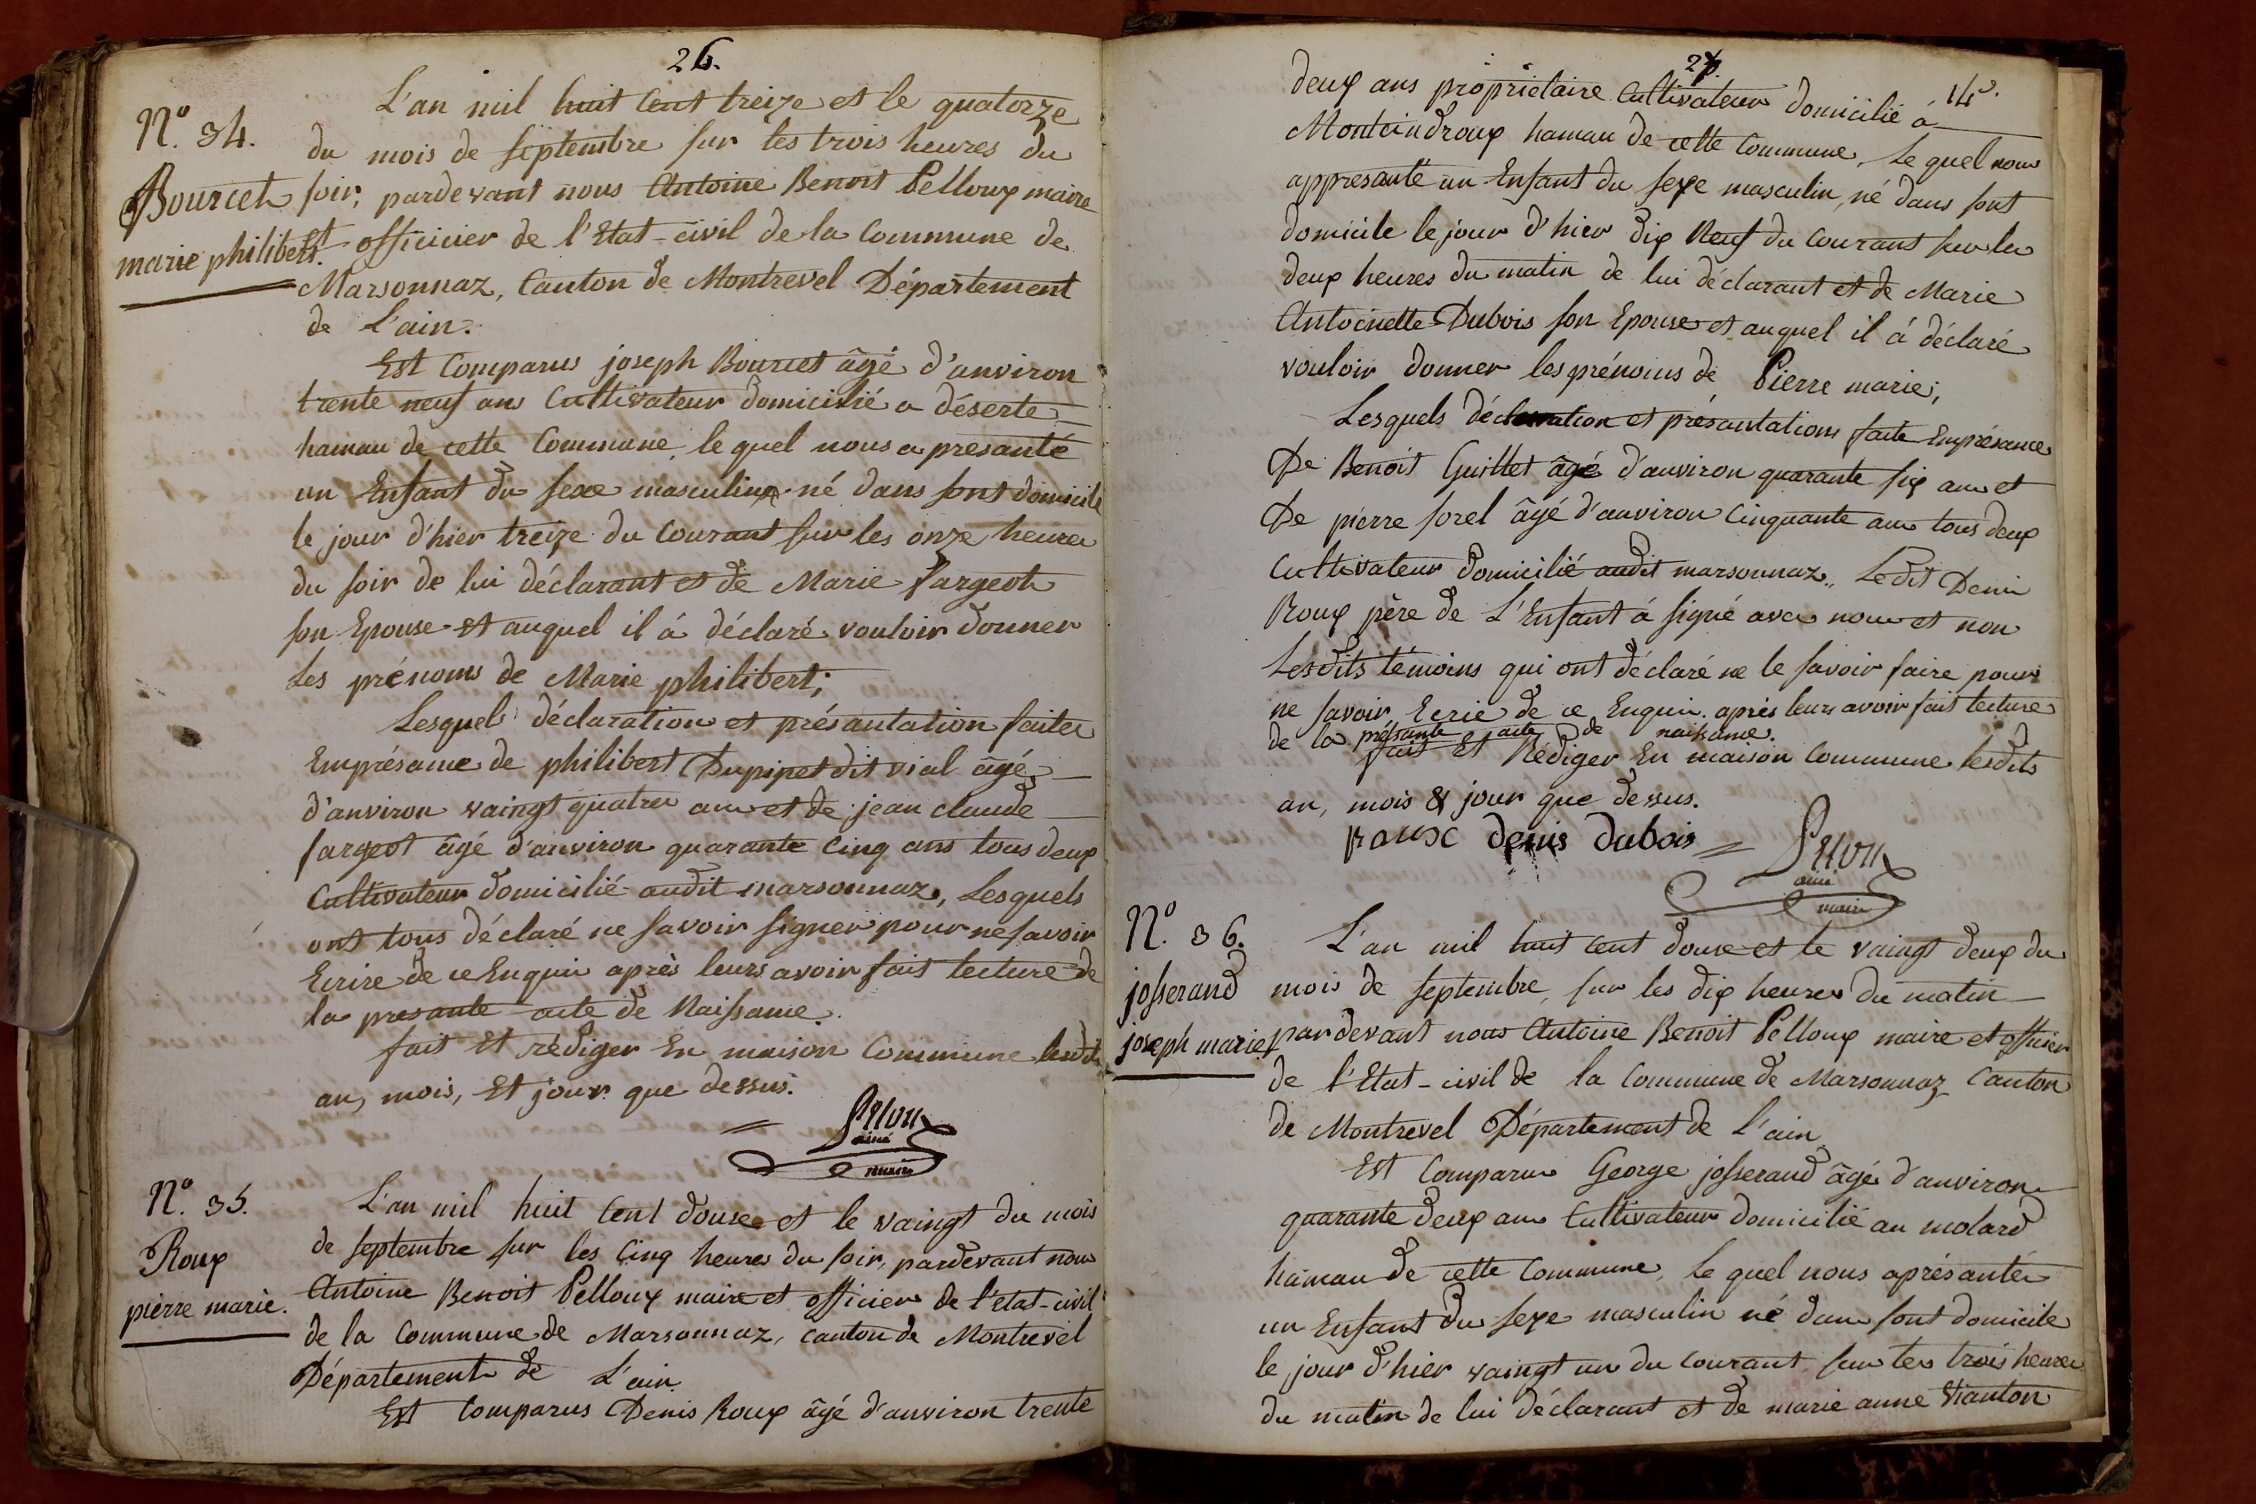 26.
N.o 34.
Bourcet
marie philibert.
L'an mil huit Cent treize et le quatorze
du mois de septembre sur les trois heures du
soir, pardevant nous Antoine Benoit Pelloux maire
et officicier de l'Etat-civil de la Commune de
Marsonnaz, Canton de Montrevel Département
de L'ain.
Est Comparus joseph Bourcet âgé d'anviron
trente neuf ans Cultivateur domicilié a déserte
hamau de cette Commune, le quel nous a presanté
un Enfant du sexe masculin né dans sont domicile
le jour d'hier treize du Courant sur les onze heures
du soir de lui déclarant et de Marie fargeot
son Epouse et auquel il á déclaré vouloir donner
Les prénoms de Marie philibert;
Lesquels déclaration et présantation faites
Emprésance de philibert Dupipet dit vial âgé
d'anviron vaingt quatres ans et de jean claude
fargeot âgé d'anviron quarante Cinq ans tous deux
Cultivateur domicilié audit marsonnaz, Lesquels
ont tous déclaré ne savoir signer pour ne savoir
Ecrire de ce Enquis après leurs avoir fait lecture de
la presante acte de Naissance.
fait Et rédiger En maison Commune lesdits
an, mois, Et jour que dessus.
Pelloux
ainé
maire
N.o 35.
Roux
pierre marie.
L'an mil huit Cent douse et le vaingt du mois
de septembre sur les Cinq heures du soir, pardevant nous
Antoine Benoit Pelloux maire et officier de l'état-civil
de la Commune de Marsonnaz, canton de Montrevel
Département de L'ain.
Est Comparus Denis Roux âgé d'anviron trente
27.
14e.
deux ans propriétaire Cultivateur domicilié á
Montcindroux hamau de cette Commune, Le quel nous
appresanté un Enfant du sexe masculin, né dans sont
domicile le jour d'hier dix Neuf du Courant sur les
deux heures du matin de lui déclarant et de Marie
Antoinette Dubois son Epouse et auquel il á déclaré
vouloir donner les prénoms de Pierre marie;
Lesquels déclaration et présantations faite Emprésance
De Benoit Guillet âgé d'anviron quarante six ans et
De pierre sorel âgé d'anviron Cinquante ans tous deux
Cultivateur domicilié audit marsonnaz. Ledit Denis
Roux père de L'Enfant á signé avec nous et non
Lesdits témoins qui ont déclaré ne le savoir faire pour
ne savoir Ecrie de ce Enquis. après leurs avoir fait lecture
de la présante acte de naissance.
fait Et Rédiger En maison Commune lesdits
an, mois & jour que dessus.
roux denis dubois
Pelloux
ainé
maire
N.o 36.
josserand
joseph marie
L'an mil huit cent douse et le vaingt deux du
mois de septembre, sur les dix heures du matin
pardevant nous Antoine Benoit Pelloux maire et officier
de l'Etat-civil de la Commune de Marsonnaz Canton
de Montrevel Département de L'ain
Est Comparus George josserand âgé d'anviron
quarante deux ans Cultivateur domicilié au molard
hamau de cette Commune, Le quel nous aprésanté
un Enfant du sexe masculin né dans sont domicile
le jour d'hier vaingt un du courant sur les trois heures
du matin de lui déclarant et de marie anne